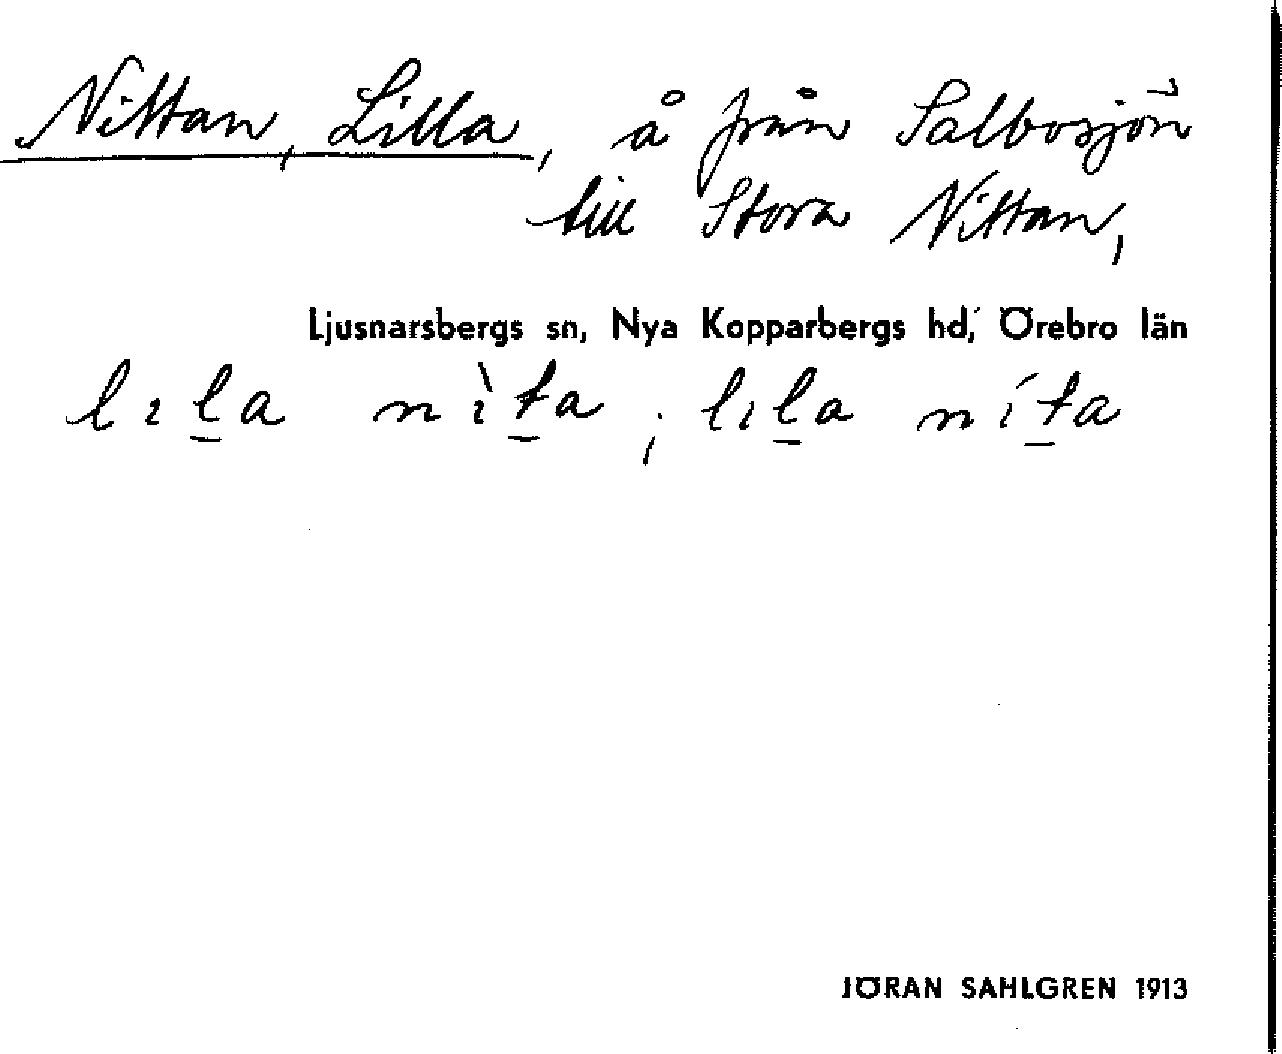 Nittan, Lilla, å från Salbosjön
till Stora Nittan,
Ljusnarsbergs sn, Nya Kopparbergs hd, Örebro län
lıl̲a nı̀t̲a; lıl̲a nít̲a
JÖRAN SAHLGREN 1913